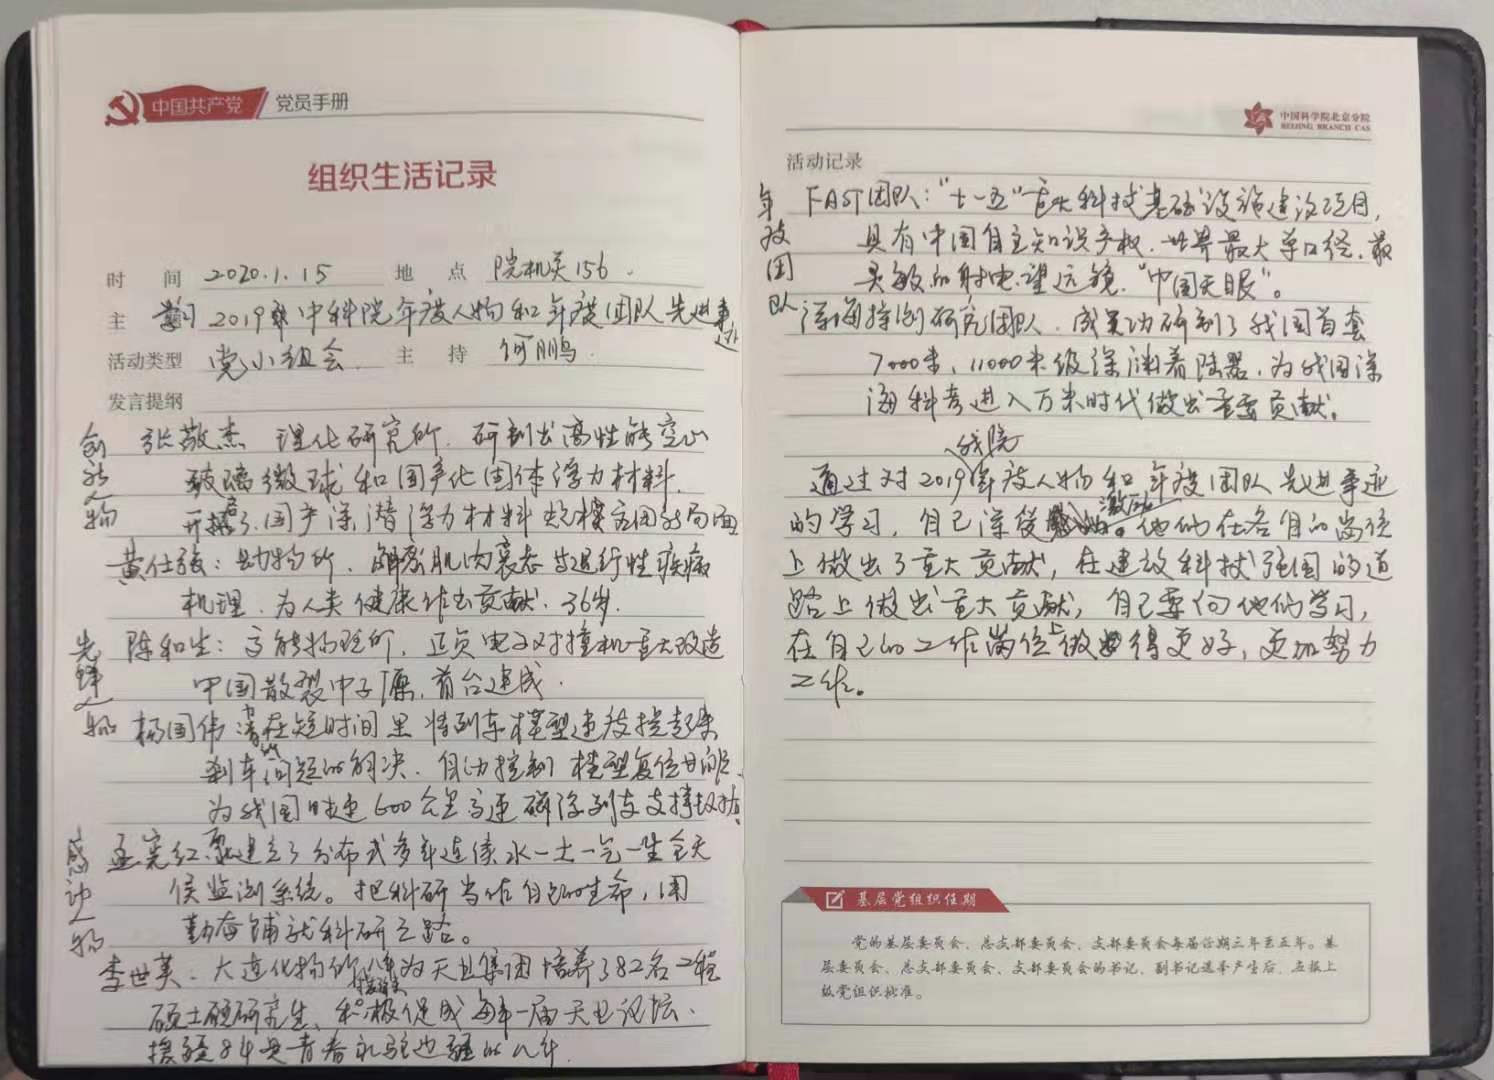 中国共产党 党员手册
组织生活记录
时 间 2020.1.15 地 点 院机关156.
主 题 2019年中科院年度人物和年度团队先进事迹
活动类型 党小组会 主 持 何鹏
发言提纲
创新人物
张敬杰 理化研究所. 研制出高性能空心
玻璃微球和国产化固体浮力材料.
开启了国产深潜浮力材料规模应用新局面
黄仕强: 动物所. 肌肉衰态与退行性疾病
机理. 为人类健康作出贡献. 36岁.
先锋人物
陈和生: 高能物理所. 正负电子对撞机重大改造
中国散裂中子源. 首台建成.
杨国伟 在短时间里将列车模型速度提起来
刹车问题的解决. 自动控制 模型复位
为我国时速600公里高速磁浮列车支撑
感动人物
孟宪红 建立了分布式多年连续水一土一气一生全天
侯监测系统。把科研当作自己的生命, 用
勤奋铺就科研之路。
李世英. 大连化物所 为天业集团培养了82名工程
硕士研究生、积极促成每年一届天业论坛.
援疆8年是青春
中国科学院北京分院
BEIJING BRANCH CAS
活动记录
年度团队
FAST团队: “十一五”重大科技基础设施建设项目,
具有中国自主知识产权. 世界最大单口径. 最
灵敏的射电望远镜. “中国天眼”。
深海探测研究团队. 成功研制了我国首套
7000米, 11000米级深渊着陆器. 为我国深
海科考进入万米时代做出重要贡献.
通过对我院2019年度人物和年度团队先进事迹
的学习, 自己深受激励。他们在各自的岗位
上做出了重大贡献, 在建设科技强国的道
路上做出重大贡献, 自己要向他们学习,
在自己的工作岗位上做得更好, 更加努力
工作。
基层党组织任期
党的基层委员会、总支部委员会、支部委员会每届任期三年至五年。基
层委员会、总支部委员会、支部委员会的书记、副书记选举产生后, 应报上
级党组织批准。